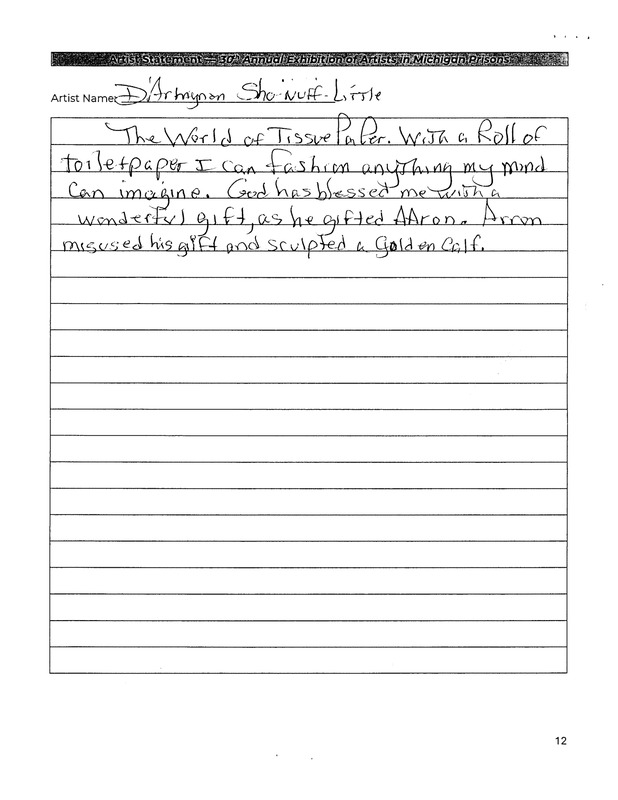 Artist Statement — 30th Annual Exhibition of Artists in Michigan Prisons
Artist Name: D'Artmynon Sho-Nuff-Little
The World of Tissue Paper. With a Roll of
toiletpaper I can fashion anything my mind
Can imagine. God has blessed me with a
wonderful gift, as he gifted AAron. Arron
misused his gift and sculpted a Golden Calf.
12